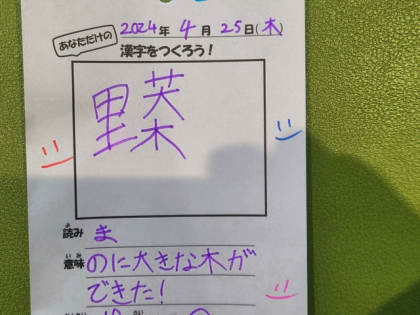 2024年 4月 25日(木)
あなただけの
漢字をつくろう!
読み ま
よ
意味 のに大きな木が
いみ
できた!